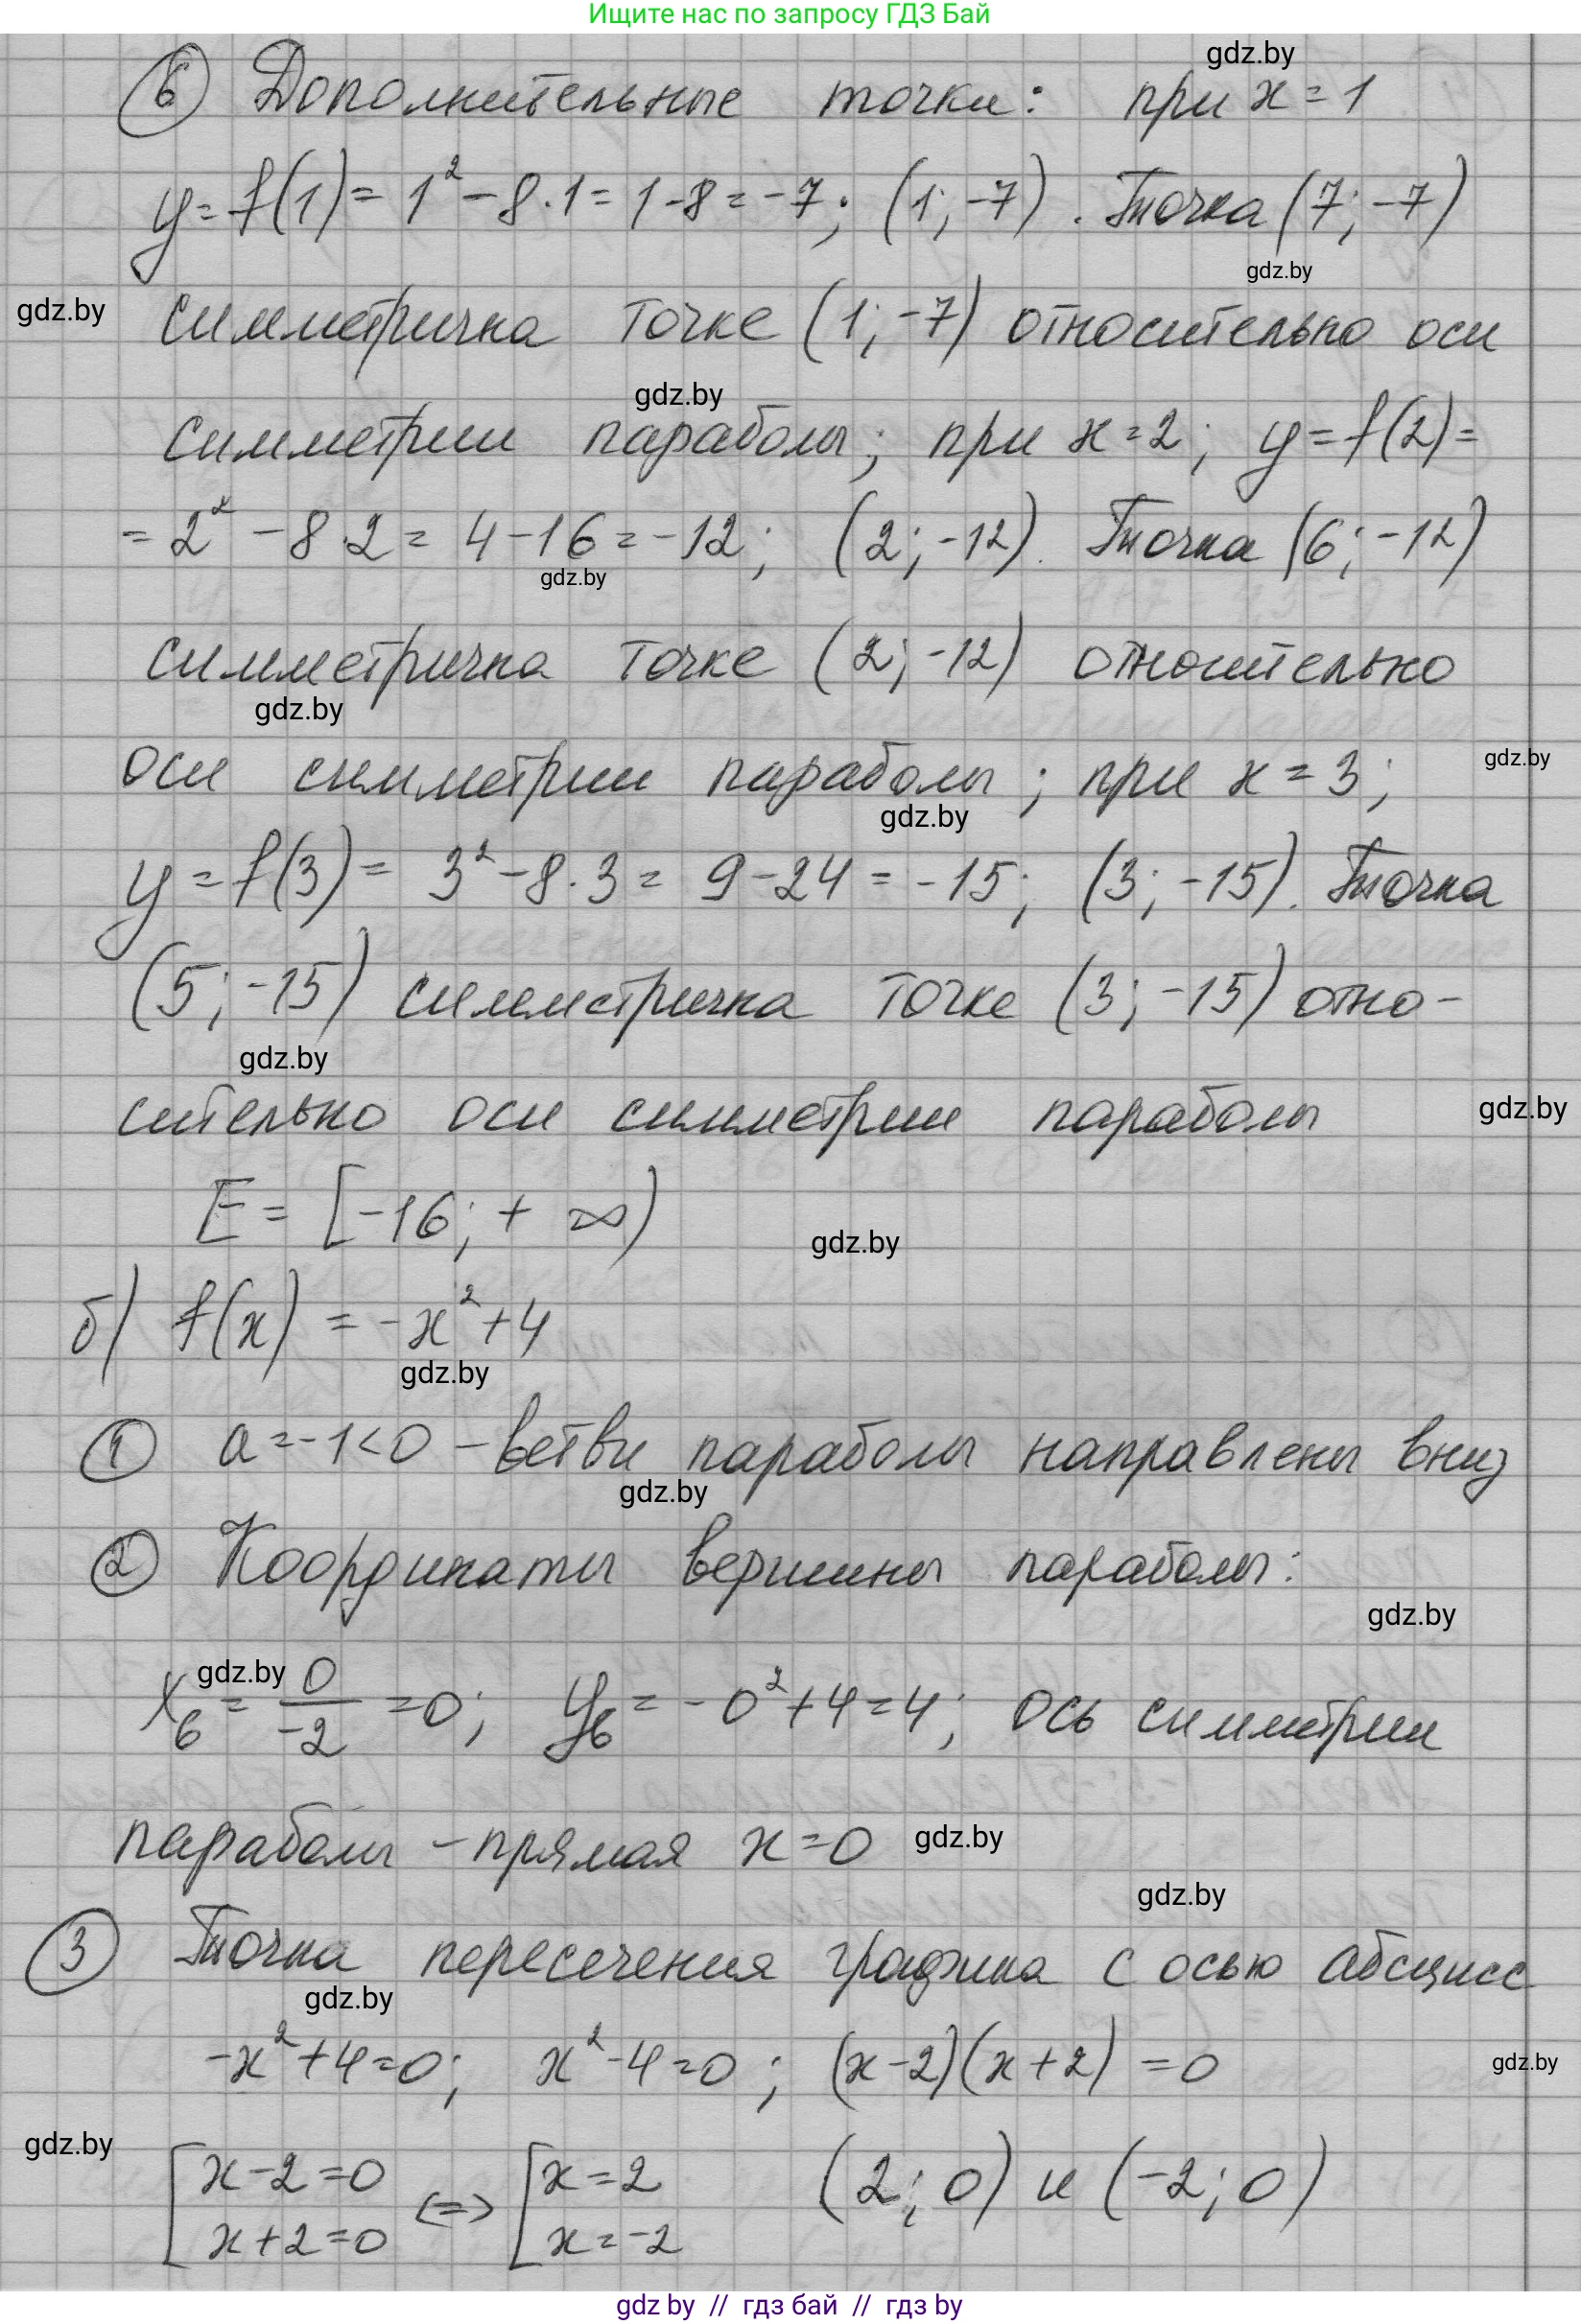 Ищите нас по запросу ГДЗ Бай
gdz.by
⑥ Дополнительные точки: при x = 1
y = f(1) = 1² - 8·1 = 1 - 8 = -7; (1; -7). Точка (7; -7)
gdz.by
gdz.by
симметрична точке (1; -7) относительно оси
gdz.by
симметрии параболы; при x = 2; y = f(2) =
= 2² - 8·2 = 4 - 16 = -12; (2; -12). Точка (6; -12)
gdz.by
симметрична точке (2; -12) относительно
gdz.by
оси симметрии параболы; при x = 3;
gdz.by
gdz.by
y = f(3) = 3² - 8·3 = 9 - 24 = -15; (3; -15). Точка
(5; -15) симметрична точке (3; -15) отно-
gdz.by
сительно оси симметрии параболы
gdz.by
E = [-16; + ∞)
gdz.by
б) f(x) = -x² + 4
gdz.by
① a = -1 < 0 - ветви параболы направлены вниз
gdz.by
② Координаты вершины параболы:
gdz.by
gdz.by
x_в = 0/-2 = 0; y_в = -0² + 4 = 4; ось симметрии
параболы - прямая x = 0
gdz.by
gdz.by
③ Точка пересечения графика с осью абсцисс
gdz.by
-x² + 4 = 0; x² - 4 = 0; (x - 2)(x + 2) = 0
gdz.by
gdz.by
[x - 2 = 0 <=> [x = 2 (2; 0) и (-2; 0)
x + 2 = 0 x = -2
gdz by // гдз бай // гдз by